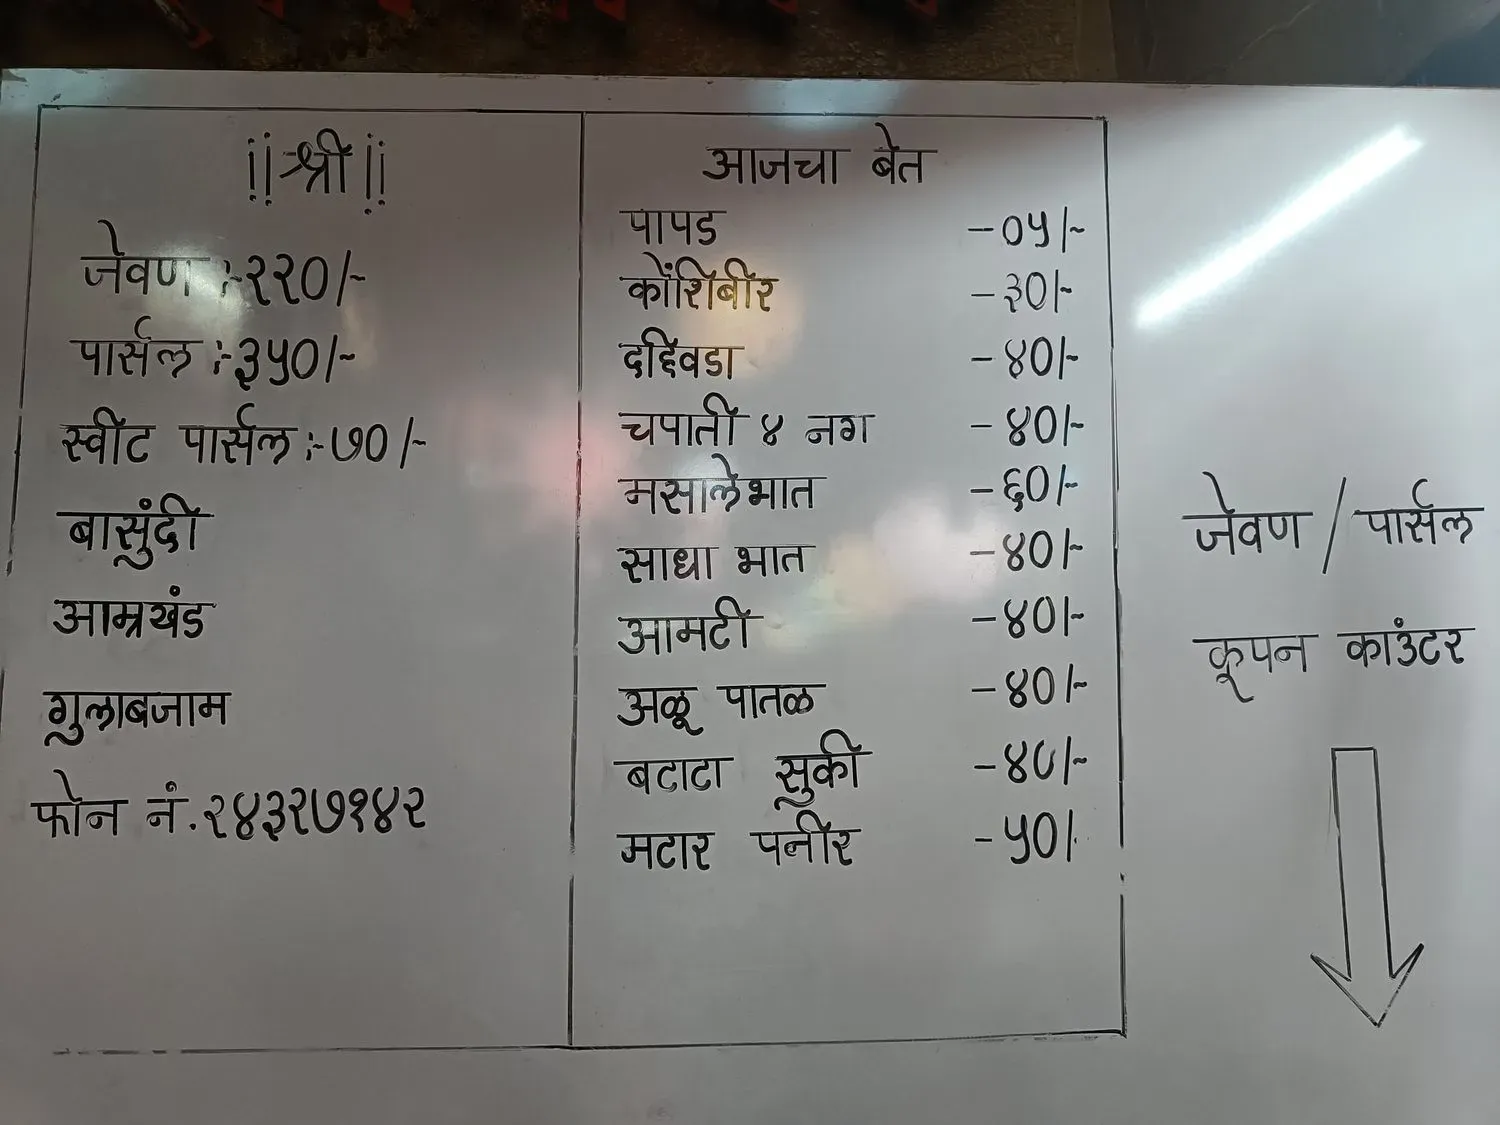 ||श्री||
जेवण :-२२०/-
पार्सल :-३५०/-
स्वीट पार्सल :-७०/-
बासुंदी
आम्रखंड
गुलाबजाम
फोन नं.२४३२७१४२
आजचा बेत
पापड -०५/-
कोंशिबीर -३०/-
दहिवडा -४०/-
चपाती ४ नग -४०/-
मसालेभात -६०/-
साधा भात -४०/-
आमटी -४०/-
अळू पातळ -४०/-
बटाटा सुकी -४०/-
मटार पनीर -५०/
जेवण / पार्सल
कूपन काउंटर